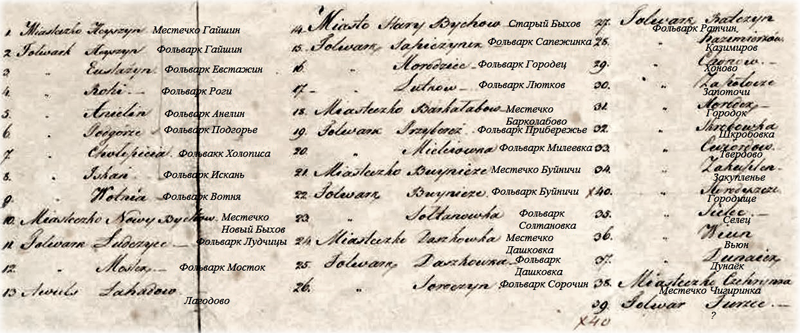 1. Miasteczko Hayszyn Местечко Гайшин
2 Folwark Hayszyn Фольварк Гайшин
3 " Eustazyn Фольварк Евстажин
4 " Roki Фольварк Роги
5 " Anielin Фольварк Анелин
6 " Podgorze Фольварк Подгорье
7 " Chołipicia Фольвакк Холописа
8 " Iskań Фольварк Искань
9 " Wotnia Фольварк Вотня
10. Miasteczko Nowy Bychow Местечко
Новый Быхов
11 Folwark Ludczyce Фольварк Лудчицы
12. " Mostek Фольварк Мосток
13 Lahadow
Лагодово
14. Miasto Stary Bychow Старый Быхов
15. Folwark Sapiezynka Фольварк Сапежинка
16. " Horodziec Фольварк Городец
17 " Lutnow Фольварк Лютков
18. Miasteczko Barkałabow Местечко
Барколабово
19. Folwark Przyberez Фольварк Прибережье
20. " Mieliowna Фольварк Милеевка
21. Miasteczko Buynicze Местечко Буйничи
22. Folwark Buynicze Фольварк Буйничи
23. " Sołtanowka Фольварк
Солтановка
24 Miasteczko Daszkowka Местечко
Дашковка
25. Folwark Daszkowka Фольварк
Дашковка
26. " Soroczyn Фольварк Сорочин
27. Folwark Ratczyn
Фольварк Ратчин,
28. " Kazimierow
Казимиров
29. " Chonow
Хоново
30. " Zapotocze
Запоточи
31. " Horodek
Городок
32. " Skrobowka
Шкробовка
33. " Cwerdow
Твердово
34. " Zakuplen
Закупленье
x40. " Horodyszcze
Городище
35. " Sielec
Селец
36. " Wiun
Вьюн
37. " Dunaiek
Дунаёк
38. Miasteczko Czehrynka
Местечко Чигиринка
39. Folwar
?
x40